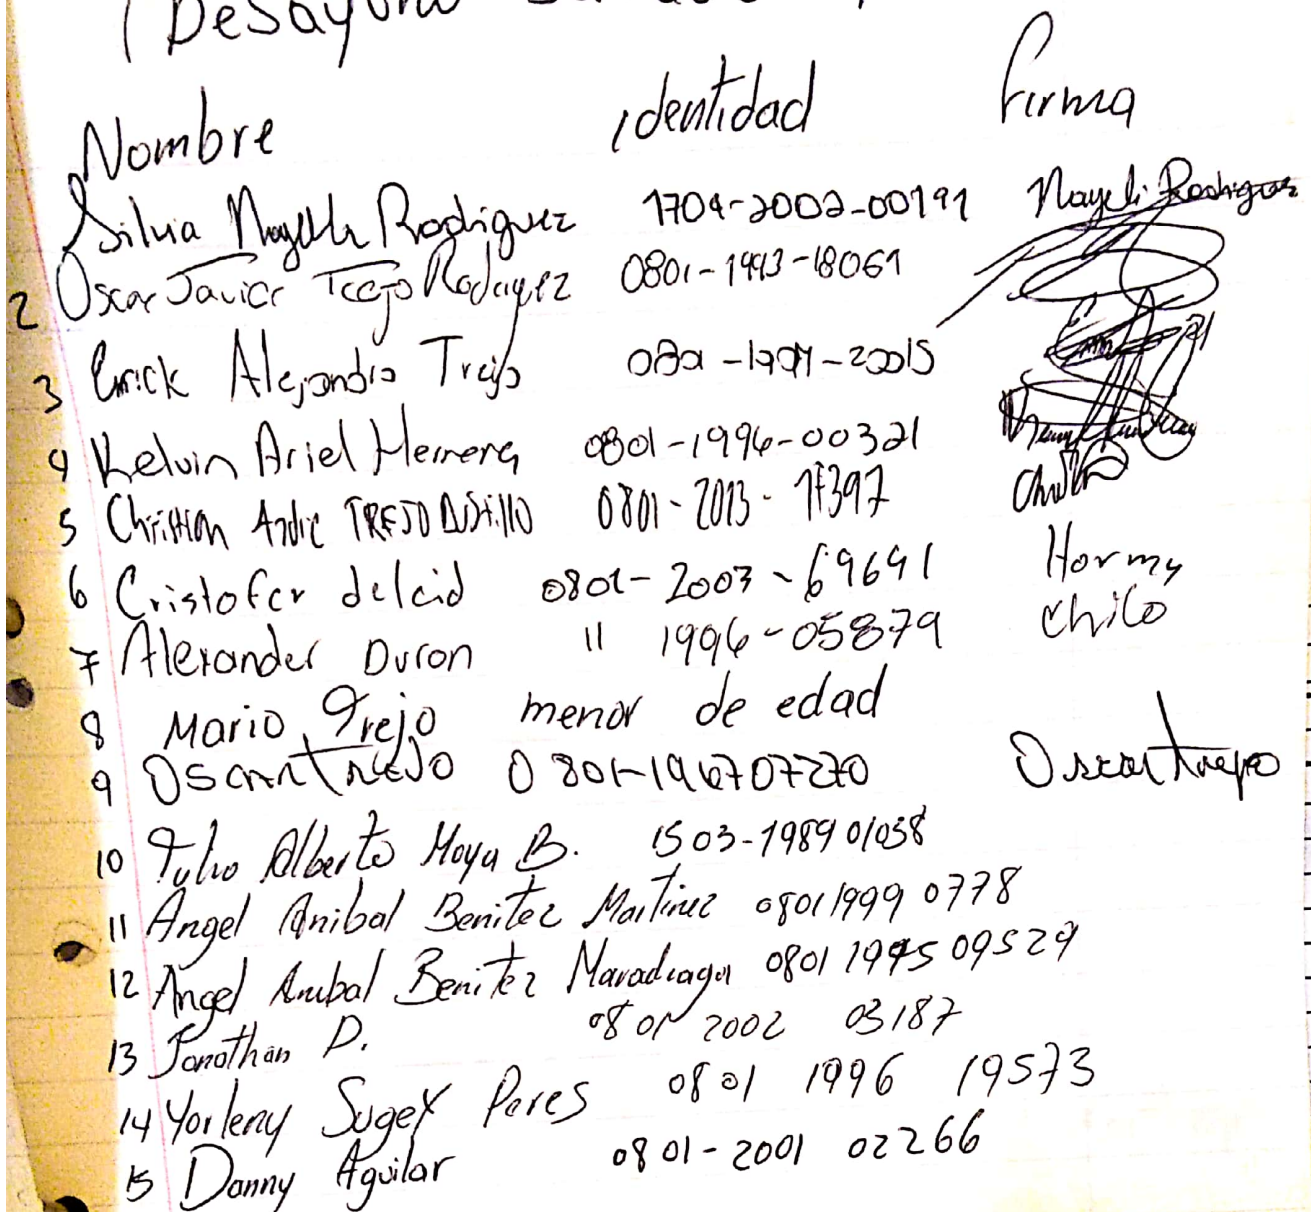 (Desayuno
Nombre identidad firma
Silvia Nayeli Rodriguez 1704-2002-00191 Nayeli Rodriguez
2 Oscar Javier Trejo Rodriguez 0801-1993-18061
3 Erick Alejandro Trejo
4 Kelvin Ariel Herrera 0801-1996-00321
5 Christian Andre TREJO 0801-2013-17397
6 Cristofer delcid 0801-2003-69691 Hormy
7 Alexander Duron 11 1996-05879 Chilo
8 Mario Trejo menor de edad
9 OSCAR TREJO 0801-196707270 Oscar trejo
10 Tulio Alberto Moya B. 1503-1989 01038
11 Angel Anibal Benitez Martinez 0801 1999 0778
12 Angel Anibal Benitez Maradiaga 0801 1995 09529
13 Jonathan D. 0801 2002 03187
14 Yorleny Sugey Peres 0801 1996 19573
15 Danny Aguilar 0801-2001 02266